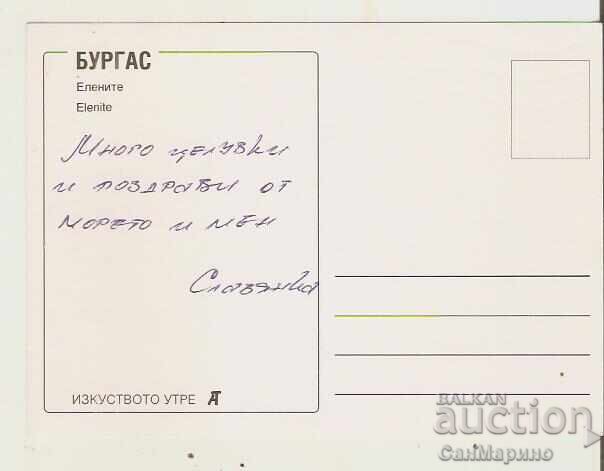 БУРГАС
Елените
Elenite
Много целувки
и поздрави от
морето и мен
Славянка
ИЗКУСТВОТО УТРЕ
BALKAN
auction
СанМарино